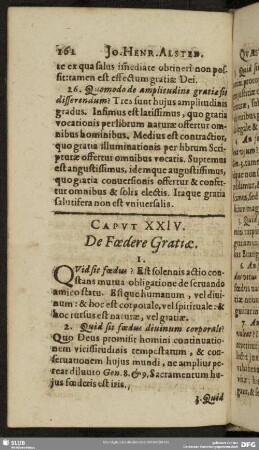 162 JO. HENR. ALSTED.
te ex qua salus īmediate obtineri non pos-
sit: tamen est effectum gratiæ Dei.
26. Quomodo de amplitudine gratiæ sit
disserendum? Tres sunt hujus amplitudinis
gradus. Infimus est latissimus, quo gratia
vocationis per librum naturæ offertur om-
nibus hominibus. Medius est contractior,
quo gratia illuminationis per librum Scri-
pturæ offertur omnibus vocatis. Supremus
est angustissimus, idemque augustissimus,
quo gratia conversionis offertur & confer-
tur omnibus & solis electis. Itaque gratia
salutifera non est vniuersalis.
CAPVT XXIV.
De Fœdere Gratiæ.
1.
QVid sit fœdus? Est solennis actio con-
stans mutua obligatione de seruando
amico statu. Estque humanum, vel divi-
num: & hoc est corporale, vel spirituale: &
hoc rursus est naturæ, vel gratiæ.
2. Quid sit fœdus diuinum corporale?
Quo Deus promisit homini continuatio-
nem vicissitudinis tempestatum, & con-
seruationem hujus mundi, ne amplius pe-
reat diluvio Gen. 8. & 9. Sacramentum hu-
jus fœderis est iris.
3. Quid
SLUB
DFG